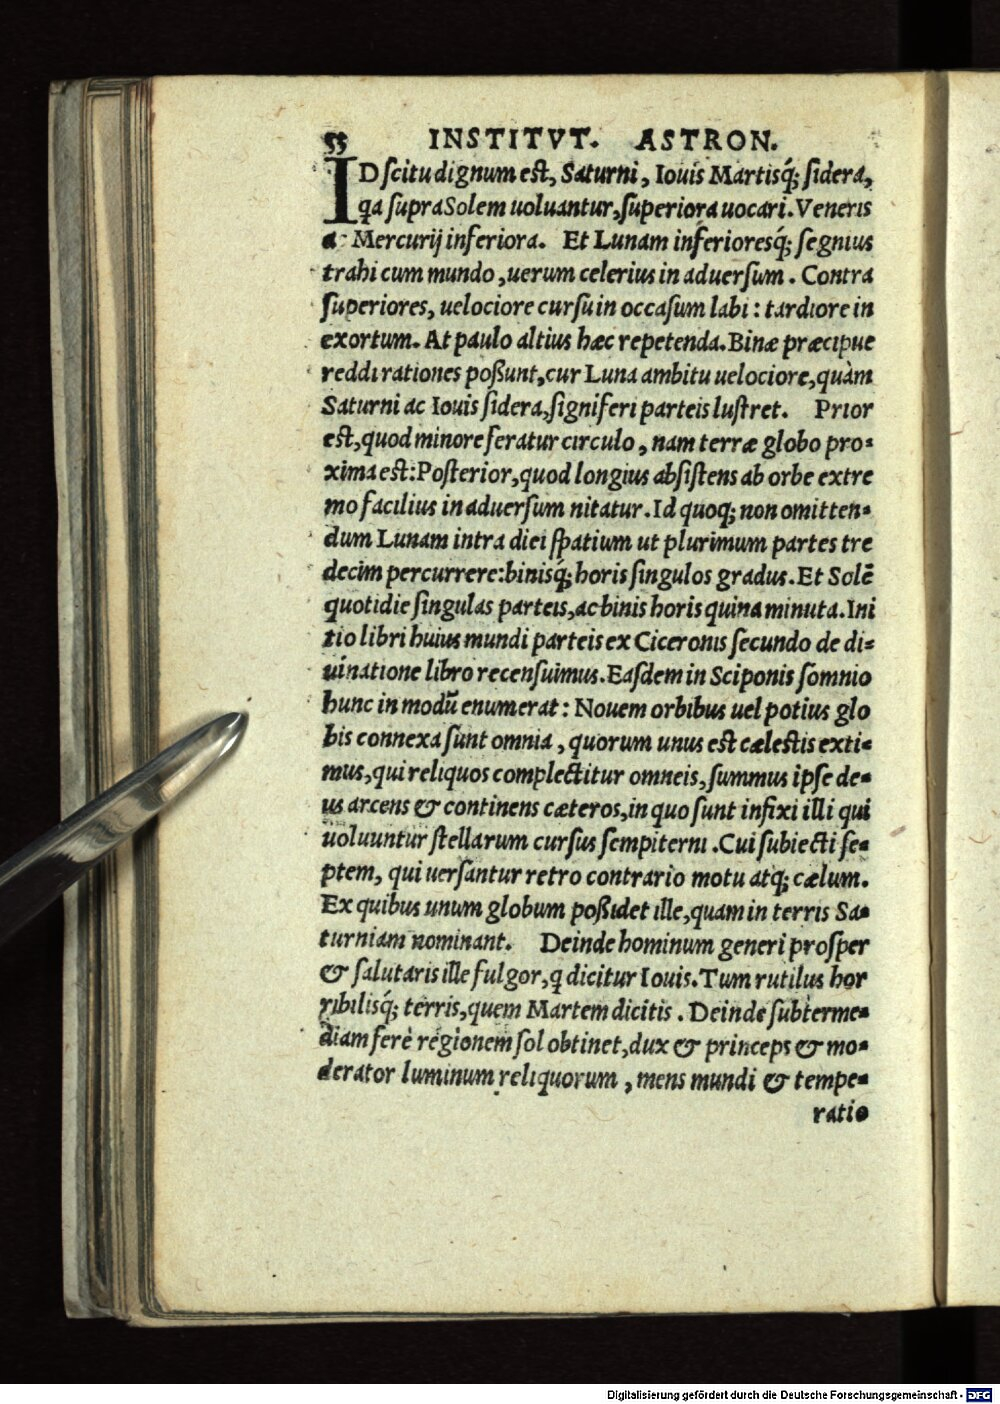 55 INSTITVT. ASTRON.
ID scitu dignum est, Saturni, Iouis Martisq́; sidera,
qa supra Solem uoluantur, superiora uocari. Veneris
a Mercurij inferiora. Et Lunam inferioresq́; segnius
trahi cum mundo, uerum celerius in aduersum. Contra
superiores, uelociore cursu in occasum labi: tardiore in
exortum. At paulo altius hæc repetenda. Binæ præcipue
reddi rationes poßunt, cur Luna ambitu uelociore, quàm
Saturni ac Iouis sidera, signiferi parteis lustret. Prior
est, quod minore feratur circulo, nam terræ globo pro-
xima est: Posterior, quod longius absistens ab orbe extre
mo facilius in aduersum nitatur. Id quoq; non omitten-
dum Lunam intra diei spatium ut plurimum partes tre
decim percurrere: binisq́; horis singulos gradus. Et Solē
quotidie singulas parteis, ac binis horis quina minuta. Ini
tio libri huius mundi parteis ex Ciceronis secundo de di-
uinatione libro recensuimus. Easdem in Sciponis somnio
hunc in modū enumerat: Nouem orbibus uel potius glo
bis connexa sunt omnia, quorum unus est cælestis exti-
mus, qui reliquos complectitur omneis, summus ipse de-
us arcens & continens cæteros, in quo sunt infixi illi qui
uoluuntur stellarum cursus sempiterni. Cui subiecti se-
ptem, qui uersantur retro contrario motu atq; cælum.
Ex quibus unum globum poßidet ille, quam in terris Sa-
turniam nominant. Deinde hominum generi prosper
& salutaris ille fulgor, q dicitur Iouis. Tum rutilus hor
ribilisq́; terris, quem Martem dicitis. Deinde subterme-
diam ferè regionem sol obtinet, dux & princeps & mo-
derator luminum reliquorum, mens mundi & tempe-
ratio
Digitalisierung gefördert durch die Deutsche Forschungsgemeinschaft - DFG